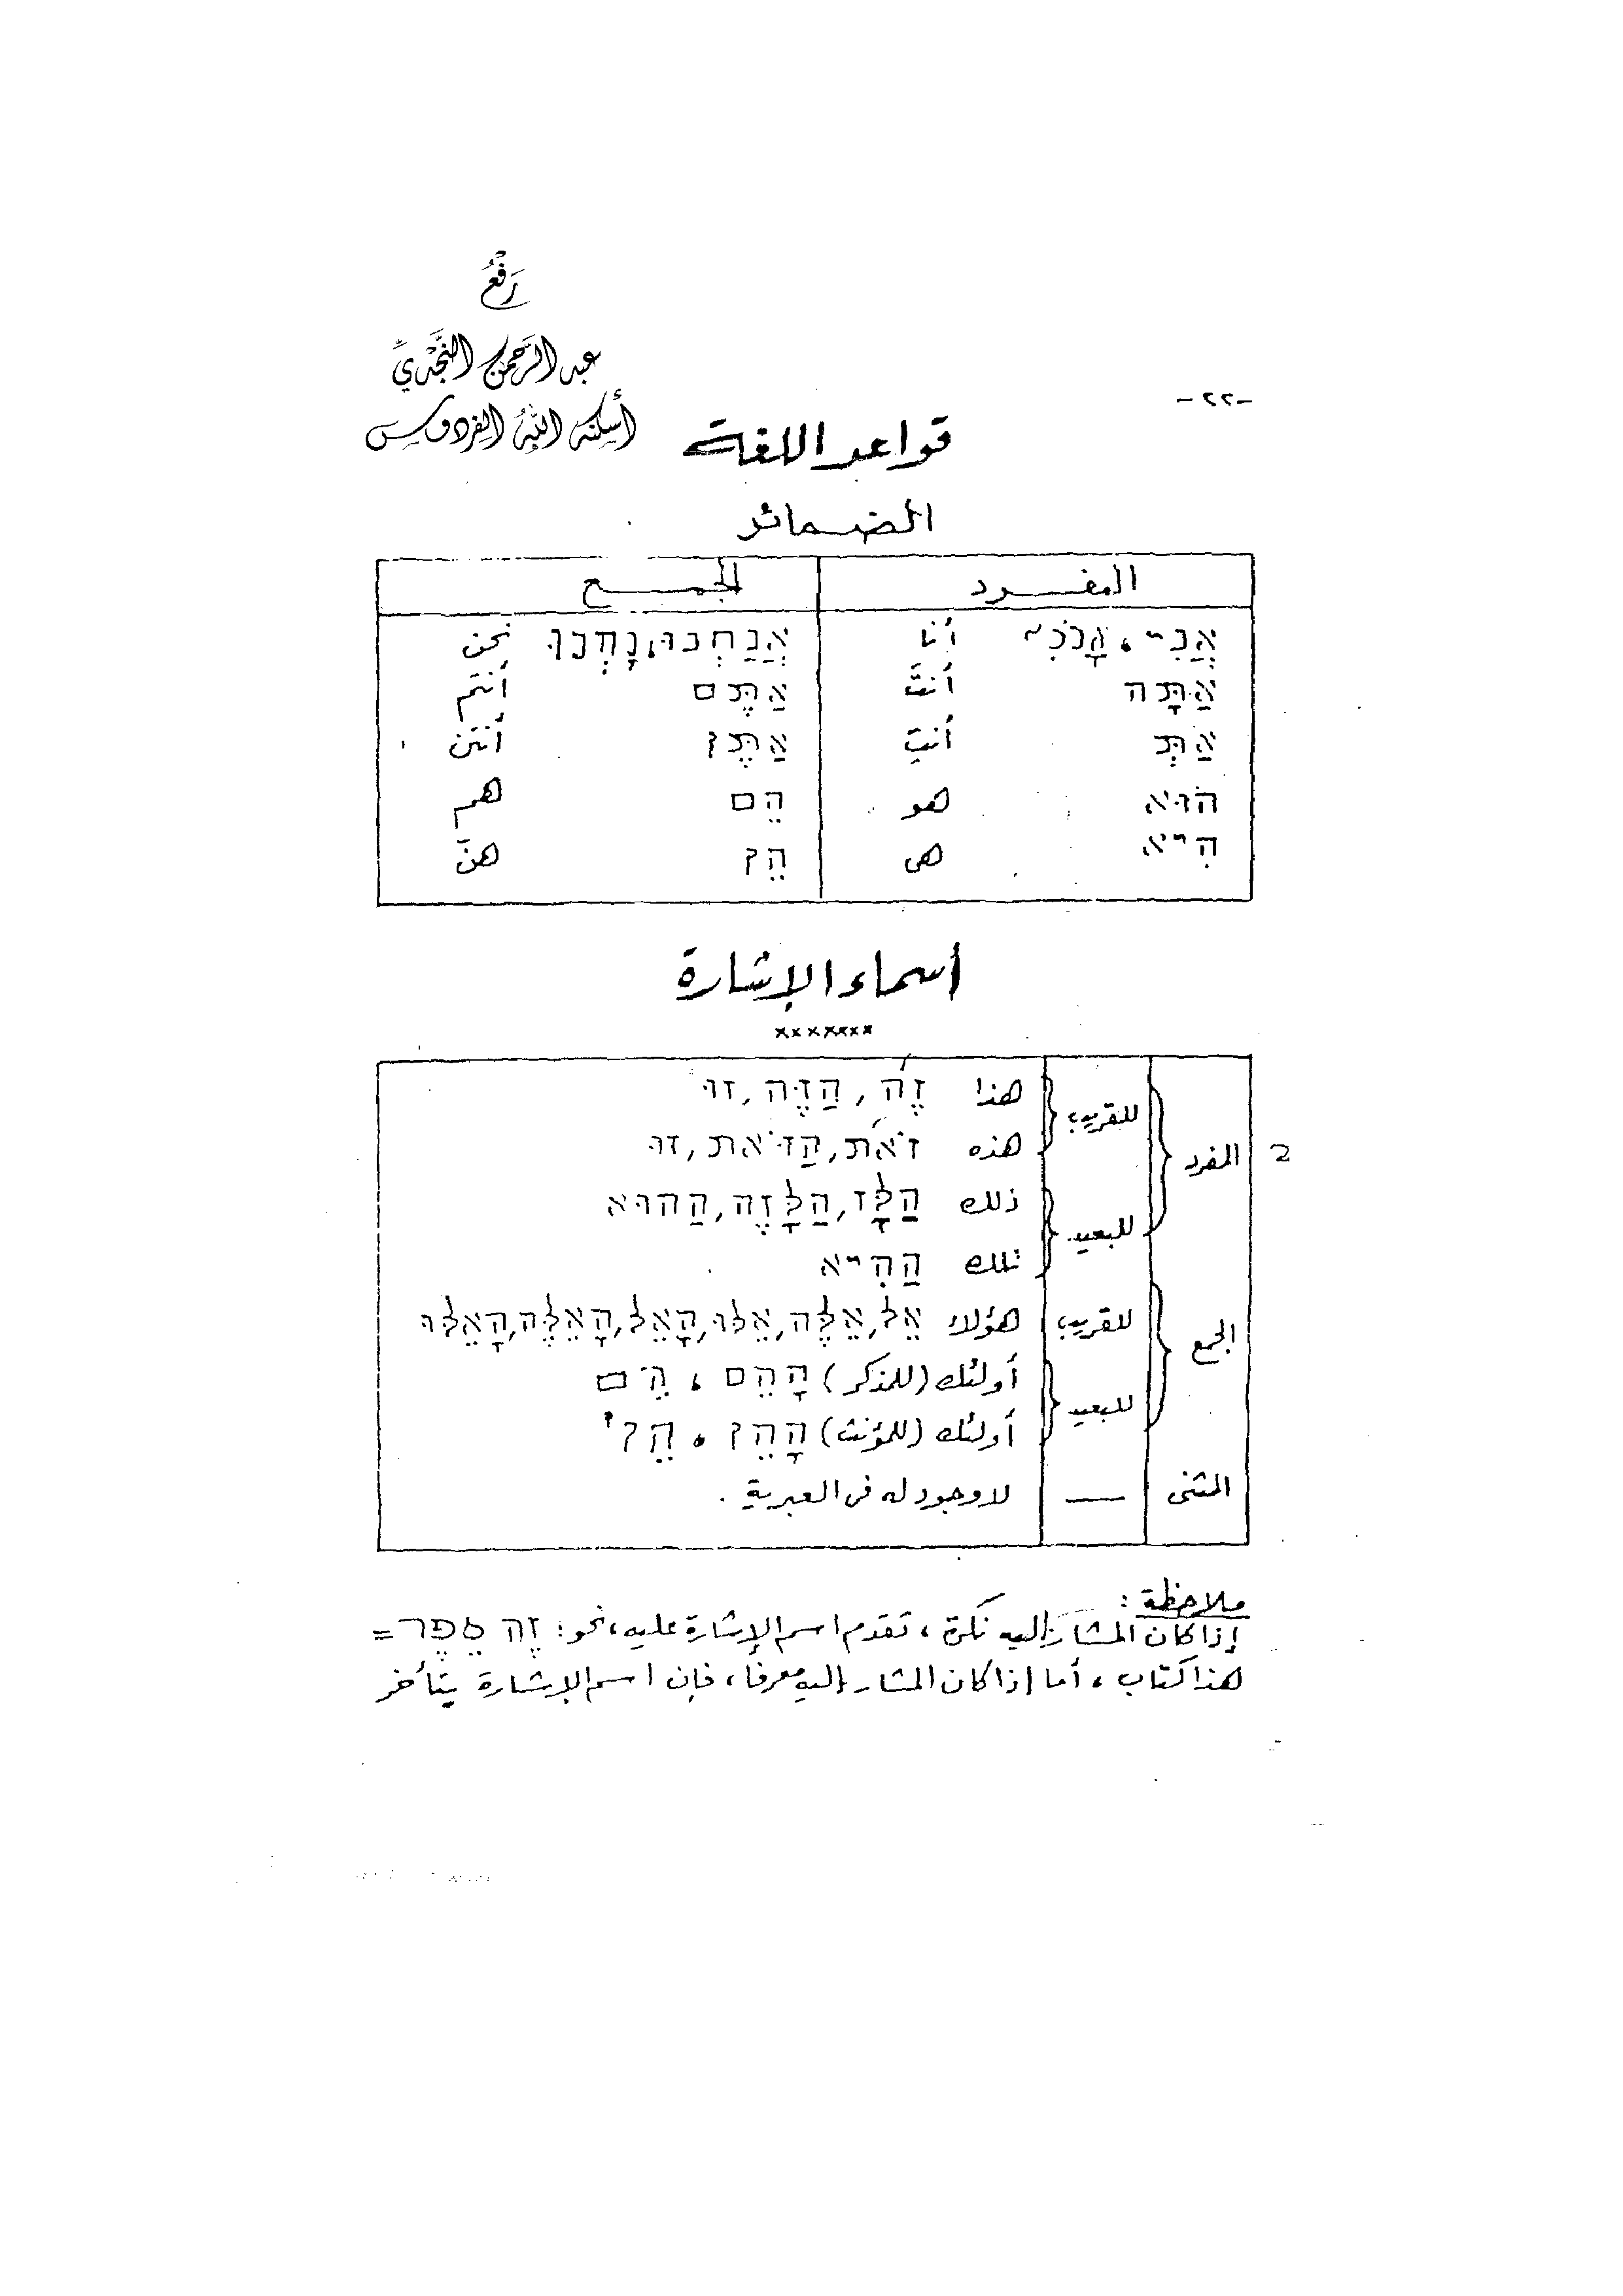 رَفْعُ
عبد الرَّحمن النَّجْدِيِّ
أسكنه اللهُ الفردوس
-٢٢-
قواعد اللغة
الضمائر
المفرد الجمع
אֲנִי، אָנֹכִי أنا אֲנַחְנוּ، נָחְנוּ نحن
אַתָּה أنتَ אַתֶּם أنتم
אַתְּ أنتِ אַתֶּן أنتن
הוּא هو הֵם هم
הִיא هى הֵן هنّ
أسماء الإشارة
×××××××
المفرد للقريب هذا זֶה, הַזֶּה, זוּ
هذه זֹאת, הַזּוֹאת, זוּ
للبعيد ذلك הַלָּז, הַלָּזֶה, הַהוּא
تلك הַהִיא
الجمع للقريب هؤلاء אֵל, אֵלֶּה, אֵלּוּ, הָאֵל, הָאֵלֶּה, הָאֵלּוּ
للبعيد أولئك (للمذكر) הָהֵם، הֵם
أولئك (للمؤنث) הָהֵן، הֵן
المثنى — لا وجود له فى العبرية.
ملاحظة:
إذا كان المشار إليه نكرة، تقدم اسم الإشارة عليه، نحو: זֶה סֵפֶר =
هذا كتاب، أما إذا كان المشار إليه معرفا، فإن اسم الإشارة يتأخر